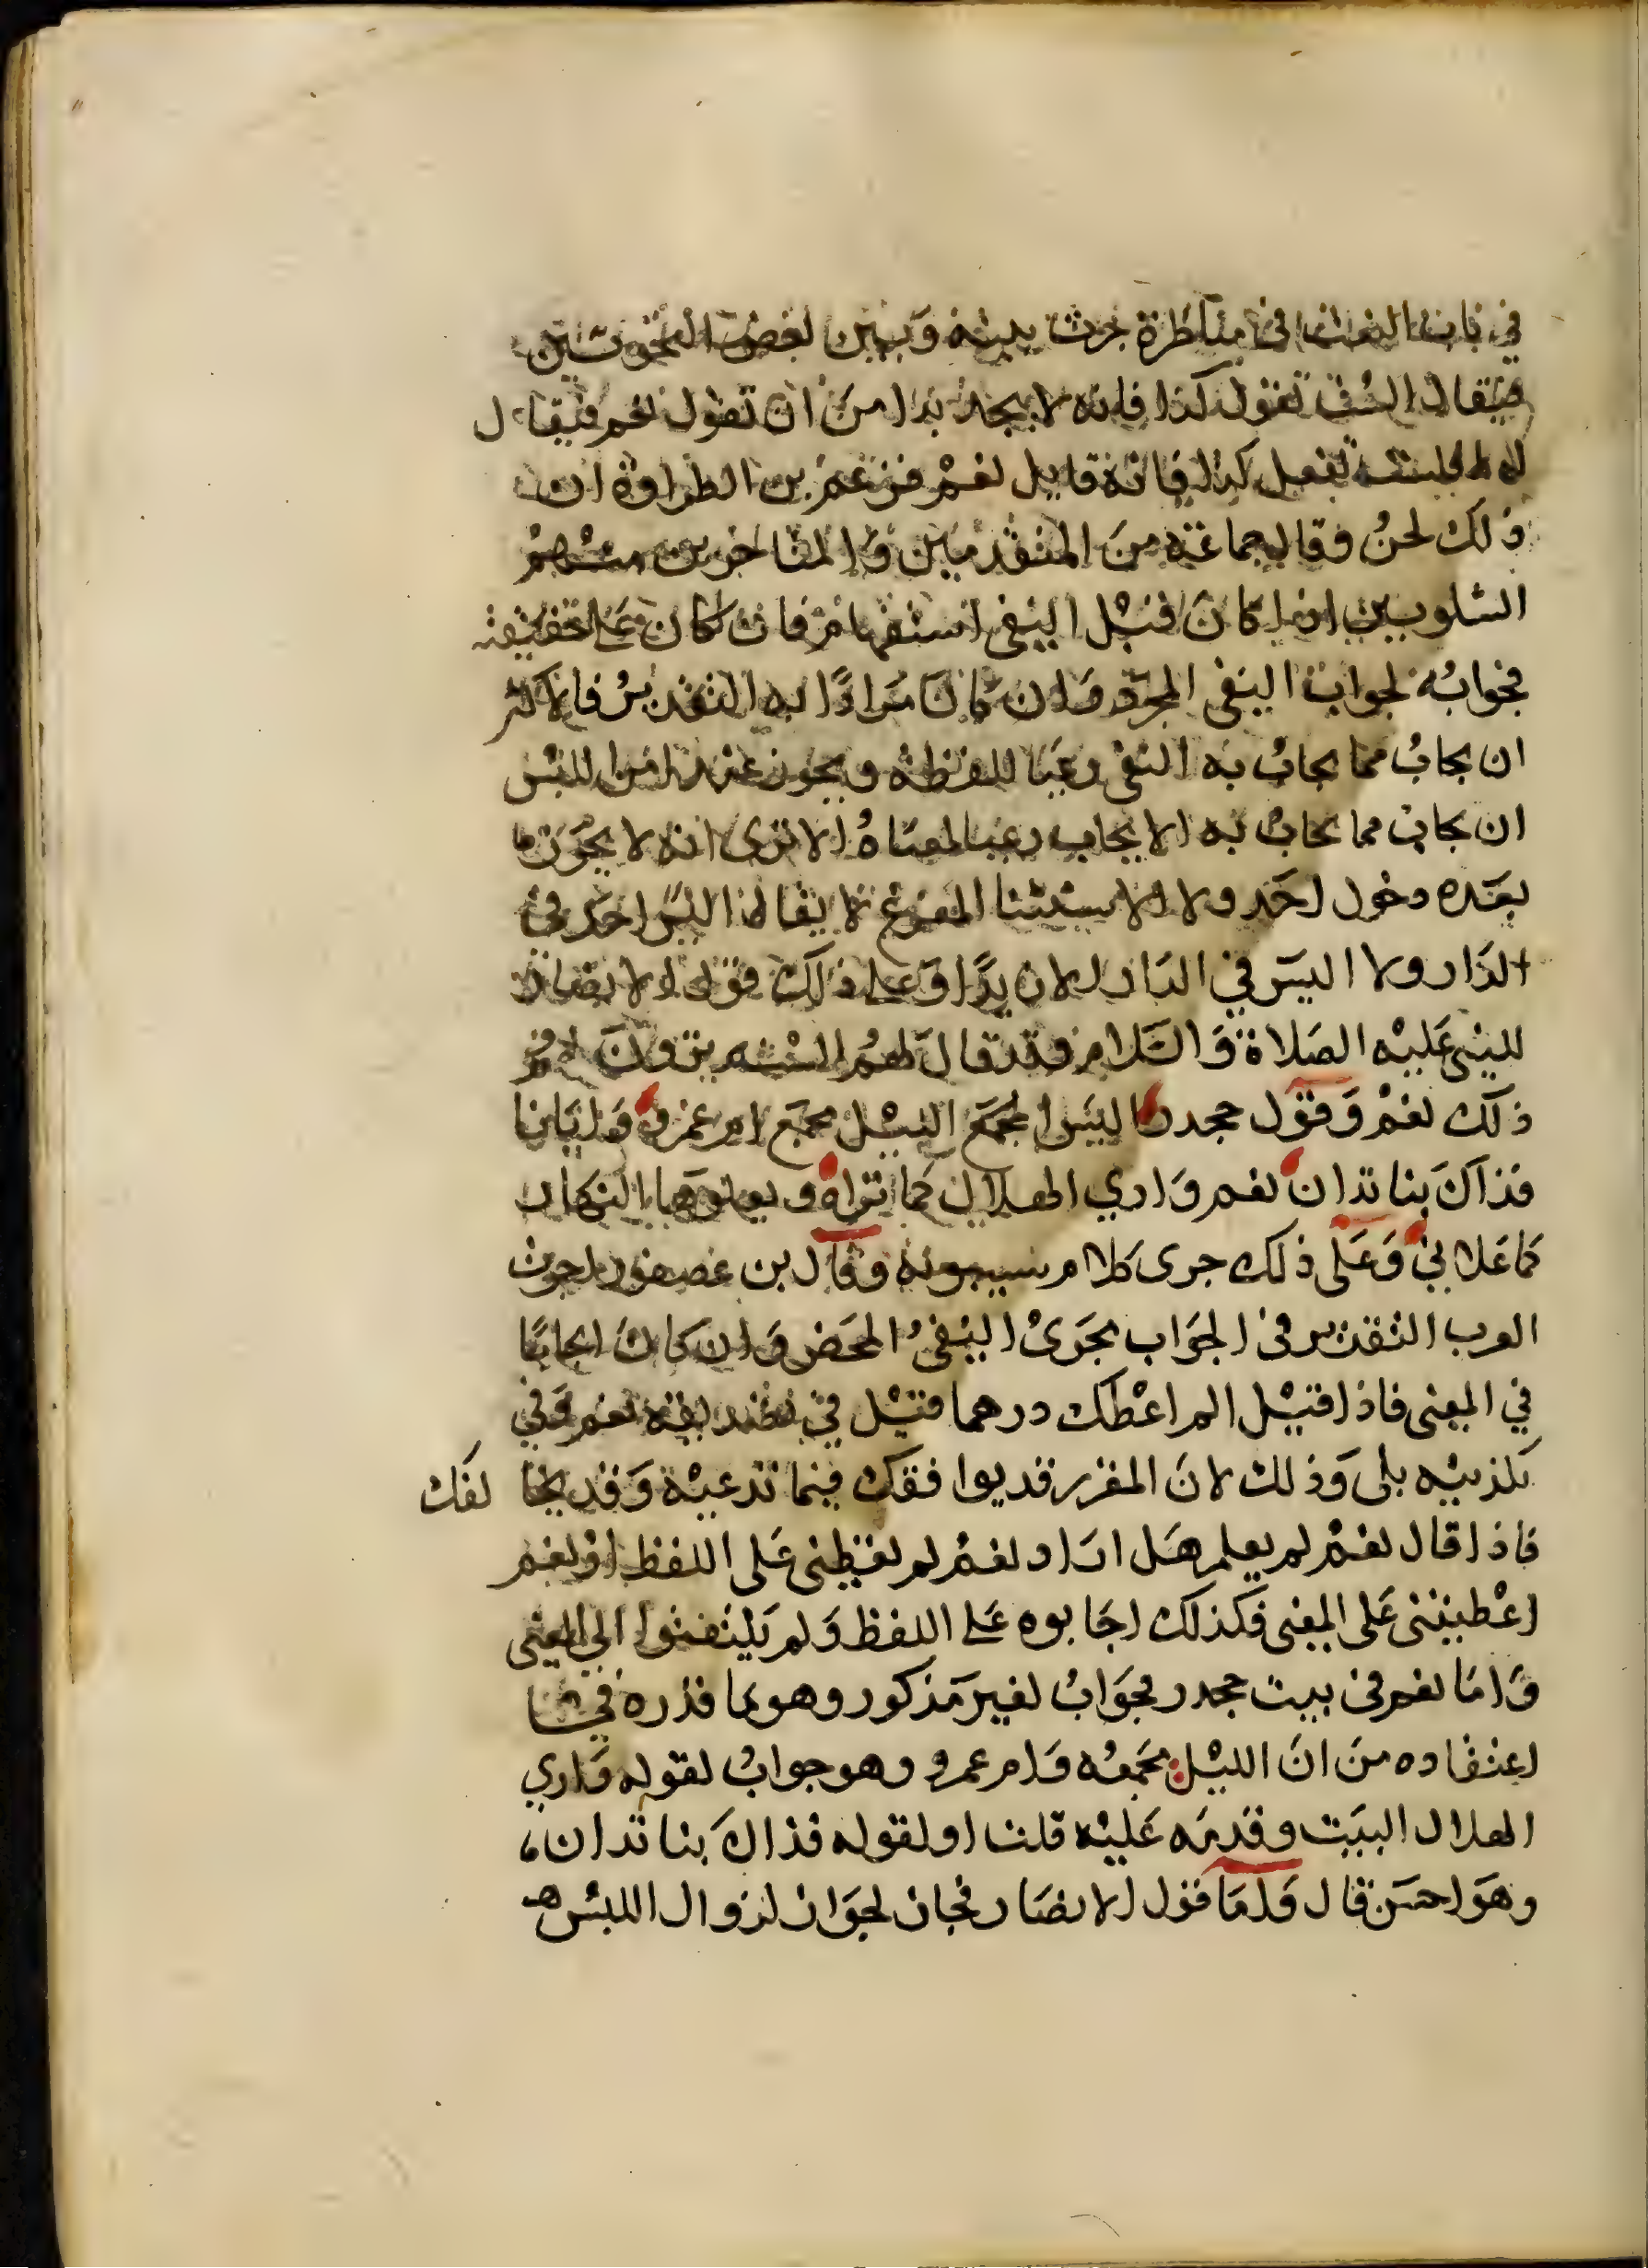 في باب النعت في مناظرة جرت بينه وبين بعض النحويين
فيقال الست تقول كذا فانه لا يجد بدا من ان تقول نعم فيقال
له افلست تفعل كذا فانه قايل نعم فزعم بن الطراوة ان
ذلك لحن وقال جماعة من المتقدمين والمتاخرين منهم
الشلوبين اذا كان قبل النفي استفهام فان كان على حقيقته
فجوابه لجواب النفي المجرد وان كان مرادًا به التقدير فالاكثر
ان يجاب مما يجاب به النفي رعيا للفظه ويجوز عند امن اللبس
ان يجاب مما يجاب به الايجاب رعيا لمعناه الا ترى انه لا يجوز
بعده دخول احد ولا الاستثنا المفرغ لا يقال اليس احد في
الدار ولا اليس في الدار الا زيدًا وعلى ذلك قول الانصار
للنبي عليه الصلاة والسلام وقد قال لهم الستم ترون لهم
ذلك نعم وقول جحدر اليس الجمع الليل يجمع ام عمرو وايانا
فذاك بنا تدان نعم واري الهلال كما تراه ويعلوها النهار
كما علاني وعلى ذلك جرى كلام سيبويه وقال بن عصفور اجرت
العرب التقدير في الجواب مجرى النفي المحض وان كان ايجابًا
في المعنى فاذا قيل الم اعطك درهما قيل في تصديقه نعم وفي
تكذيبه بلى وذلك لان المقرر قد يوافقك فيما تدعيه وقد يخا لفك
فاذا قال نعم لم يعلم هل اراد نعم لم تعطني على اللفظ او نعم
اعطيتني على المعنى فكذلك اجابوه على اللفظ ولم يلتفتوا الى المعنى
واما نعم في بيت جحدر فجواب لغير مذكور وهو ما قدره في
اعتقاده من ان الليل يجمعه وام عمرو وهو جواب لقوله واري
الهلال البيت وقدمه عليه قلت او لقوله فذاك بنا تدان،
وهو احسن قال واما قول الانصار فجاز لجواز لزوال اللبس هـ